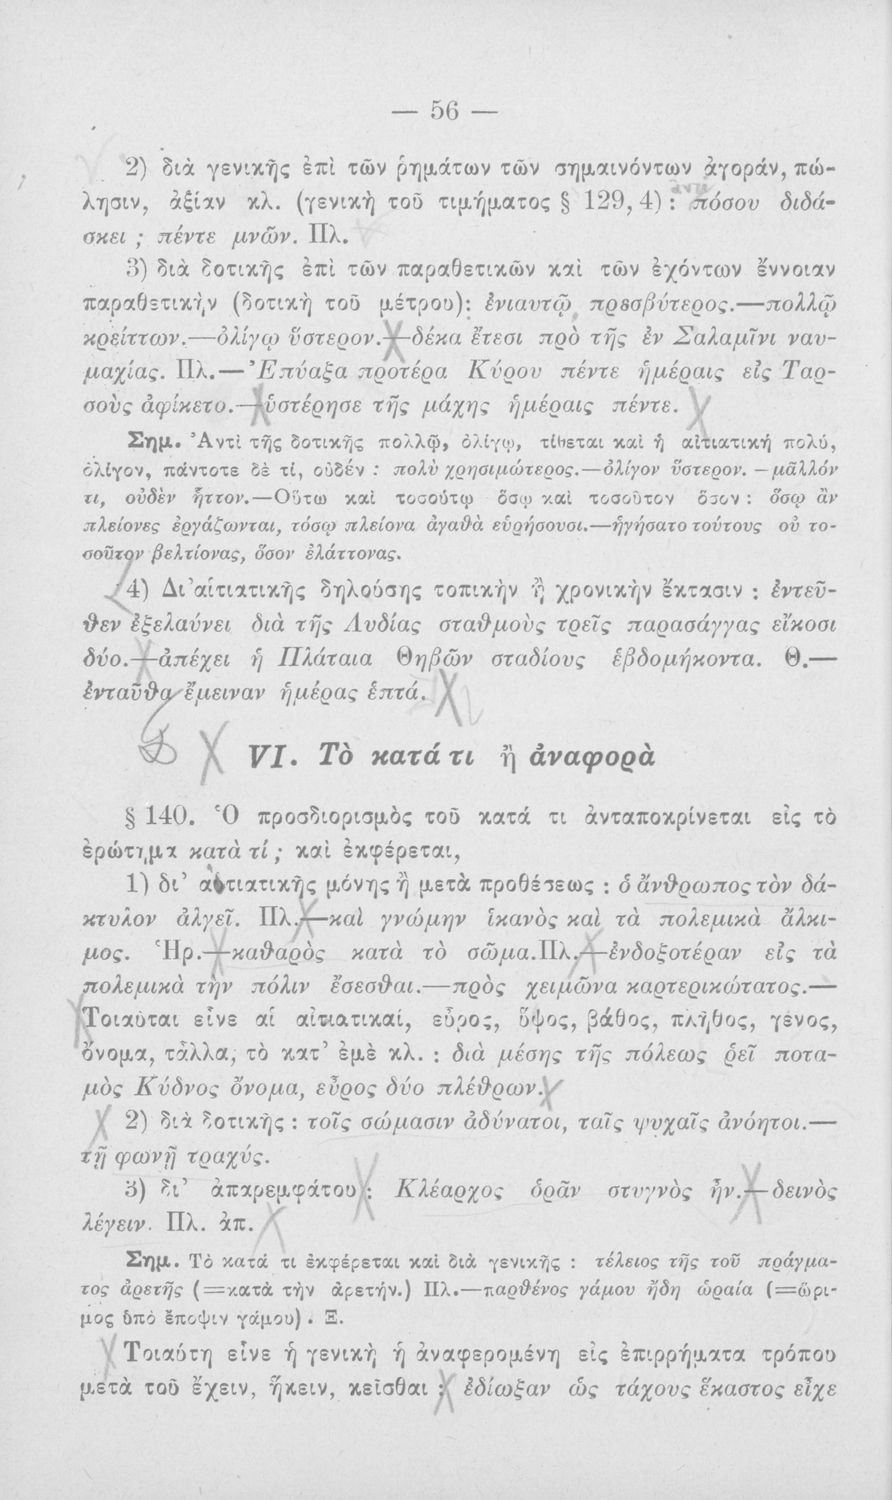 — 56 —
2) διὰ γενικῆς ἐπὶ τῶν ῥημάτων τῶν σημαινόντων ἀγοράν, πώ-
λησιν, ἀξίαν κλ. (γενικὴ τοῦ τιμήματος § 129, 4) : πόσου διδά-
σκει ; πέντε μνῶν. Πλ.
3) διὰ δοτικῆς ἐπὶ τῶν παραθετικῶν καὶ τῶν ἐχόντων ἔννοιαν
παραθετικὴν (δοτικὴ τοῦ μέτρου): ἐνιαυτῷ πρεσβύτερος.—πολλῷ
κρείττων.—ὀλίγῳ ὕστερον.—δέκα ἔτεσι πρὸ τῆς ἐν Σαλαμῖνι ναυ-
μαχίας. Πλ.—Ἐπύαξα προτέρα Κύρου πέντε ἡμέραις εἰς Ταρ-
σοὺς ἀφίκετο.—ὑστέρησε τῆς μάχης ἡμέραις πέντε.
Σημ. Ἀντὶ τῆς δοτικῆς πολλῷ, ὀλίγῳ, τίθεται καὶ ἡ αἰτιατική πολύ,
ὀλίγον, πάντοτε δὲ τί, οὐδέν : πολὺ χρησιμώτερος.—ὀλίγον ὕστερον. —μᾶλλόν
τι, οὐδὲν ἧττον.—Οὕτω καὶ τοσούτῳ ὅσῳ καὶ τοσοῦτον ὅσον : ὅσῳ ἂν
πλείονες ἐργάζωνται, τόσῳ πλείονα ἀγαθὰ εὑρήσουσι.—ἡγήσατο τούτους οὐ το-
σοῦτον βελτίονας, ὅσον ἐλάττονας.
4) Δι' αἰτιατικῆς δηλούσης τοπικὴν ἢ χρονικὴν ἔκτασιν : ἐντεῦ-
θεν ἐξελαύνει διὰ τῆς Λυδίας σταθμοὺς τρεῖς παρασάγγας εἴκοσι
δύο.—ἀπέχει ἡ Πλάταια Θηβῶν σταδίους ἑβδομήκοντα. Θ.—
ἐνταῦθα ἔμειναν ἡμέρας ἑπτά.
VI. Τὸ κατά τι ἢ ἀναφορὰ
§ 140. Ὁ προσδιορισμὸς τοῦ κατά τι ἀνταποκρίνεται εἰς τὸ
ἐρώτημα κατὰ τί ; καὶ ἐκφέρεται,
1) δι' αἰτιατικῆς μόνης ἢ μετὰ προθέσεως : ὁ ἄνθρωπος τὸν δά-
κτυλον ἀλγεῖ. Πλ.—καὶ γνώμην ἱκανὸς καὶ τὰ πολεμικὰ ἄλκι-
μος. Ἡρ.—καθαρὸς κατὰ τὸ σῶμα. Πλ.—ἐνδοξοτέραν εἰς τὰ
πολεμικὰ τὴν πόλιν ἔσεσθαι.—πρὸς χειμῶνα καρτερικώτατος.—
Τοιαῦται εἶνε αἱ αἰτιατικαί, εὖρος, ὕψος, βάθος, πλῆθος, γένος,
ὄνομα, τἆλλα, τὸ κατ' ἐμὲ κλ. : διὰ μέσης τῆς πόλεως ῥεῖ ποτα-
μὸς Κύδνος ὄνομα, εὖρος δύο πλέθρων.
2) διὰ δοτικῆς : τοῖς σώμασιν ἀδύνατοι, ταῖς ψυχαῖς ἀνόητοι.—
τῇ φωνῇ τραχύς.
3) δι' ἀπαρεμφάτου : Κλέαρχος ὁρᾶν στυγνὸς ἦν.—δεινὸς
λέγειν. Πλ. ἀπ.
Σημ. Τὸ κατά τι ἐκφέρεται καὶ διὰ γενικῆς : τέλειος τῆς τοῦ πράγμα-
τος ἀρετῆς (=κατὰ τὴν ἀρετήν.) Πλ.—παρθένος γάμου ἤδη ὡραία (=ὥρι-
μος ὑπὸ ἔποψιν γάμου) . Ξ.
Τοιαύτη εἶνε ἡ γενικὴ ἡ ἀναφερομένη εἰς ἐπιρρήματα τρόπου
μετὰ τοῦ ἔχειν, ἥκειν, κεῖσθαι : ἐδίωξαν ὡς τάχους ἕκαστος εἶχε